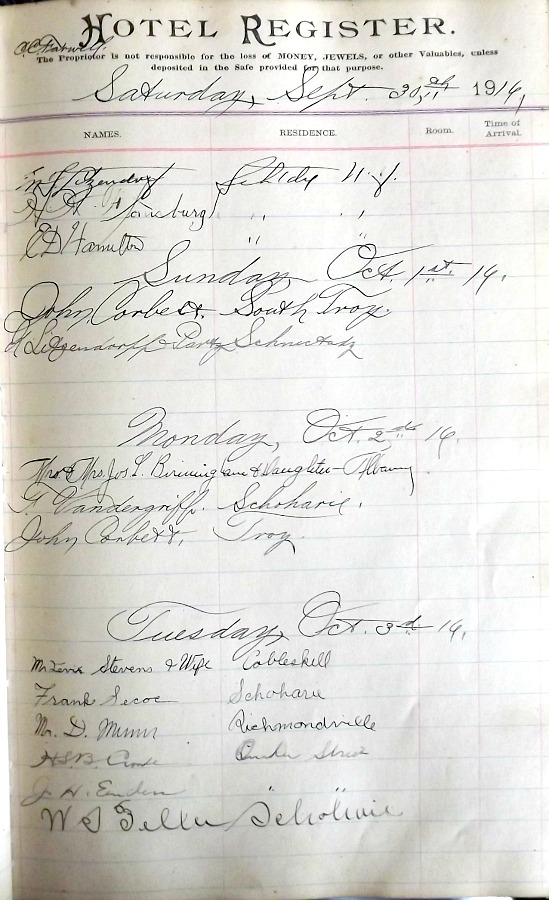 HOTEL REGISTER.
The Proprietor is not responsible for the loss of MONEY, JEWELS, or other Valuables, unless
deposited in the Safe provided for that purpose.
Saturday, Sept. 30th 1916,
NAMES. RESIDENCE. Room. Time of Arrival.
N. Y.
" "
Hamilton " "
Sunday Oct. 1st. 16.
John Corbett. South Troy.
Party
Monday, Oct. 2nd. 16.
Mr. & Mrs. Jos. L. & Daughter - Albany
F. Vandergriff. Schoharie.
John Corbett, Troy.
Tuesday, Oct. 3rd 16.
Stevens & Wife Cobleskill
Frank Secoe Schoharie
Mr. D. Munn Richmondville
H.S.B.
J. H. " "
W S Feller Schoharie